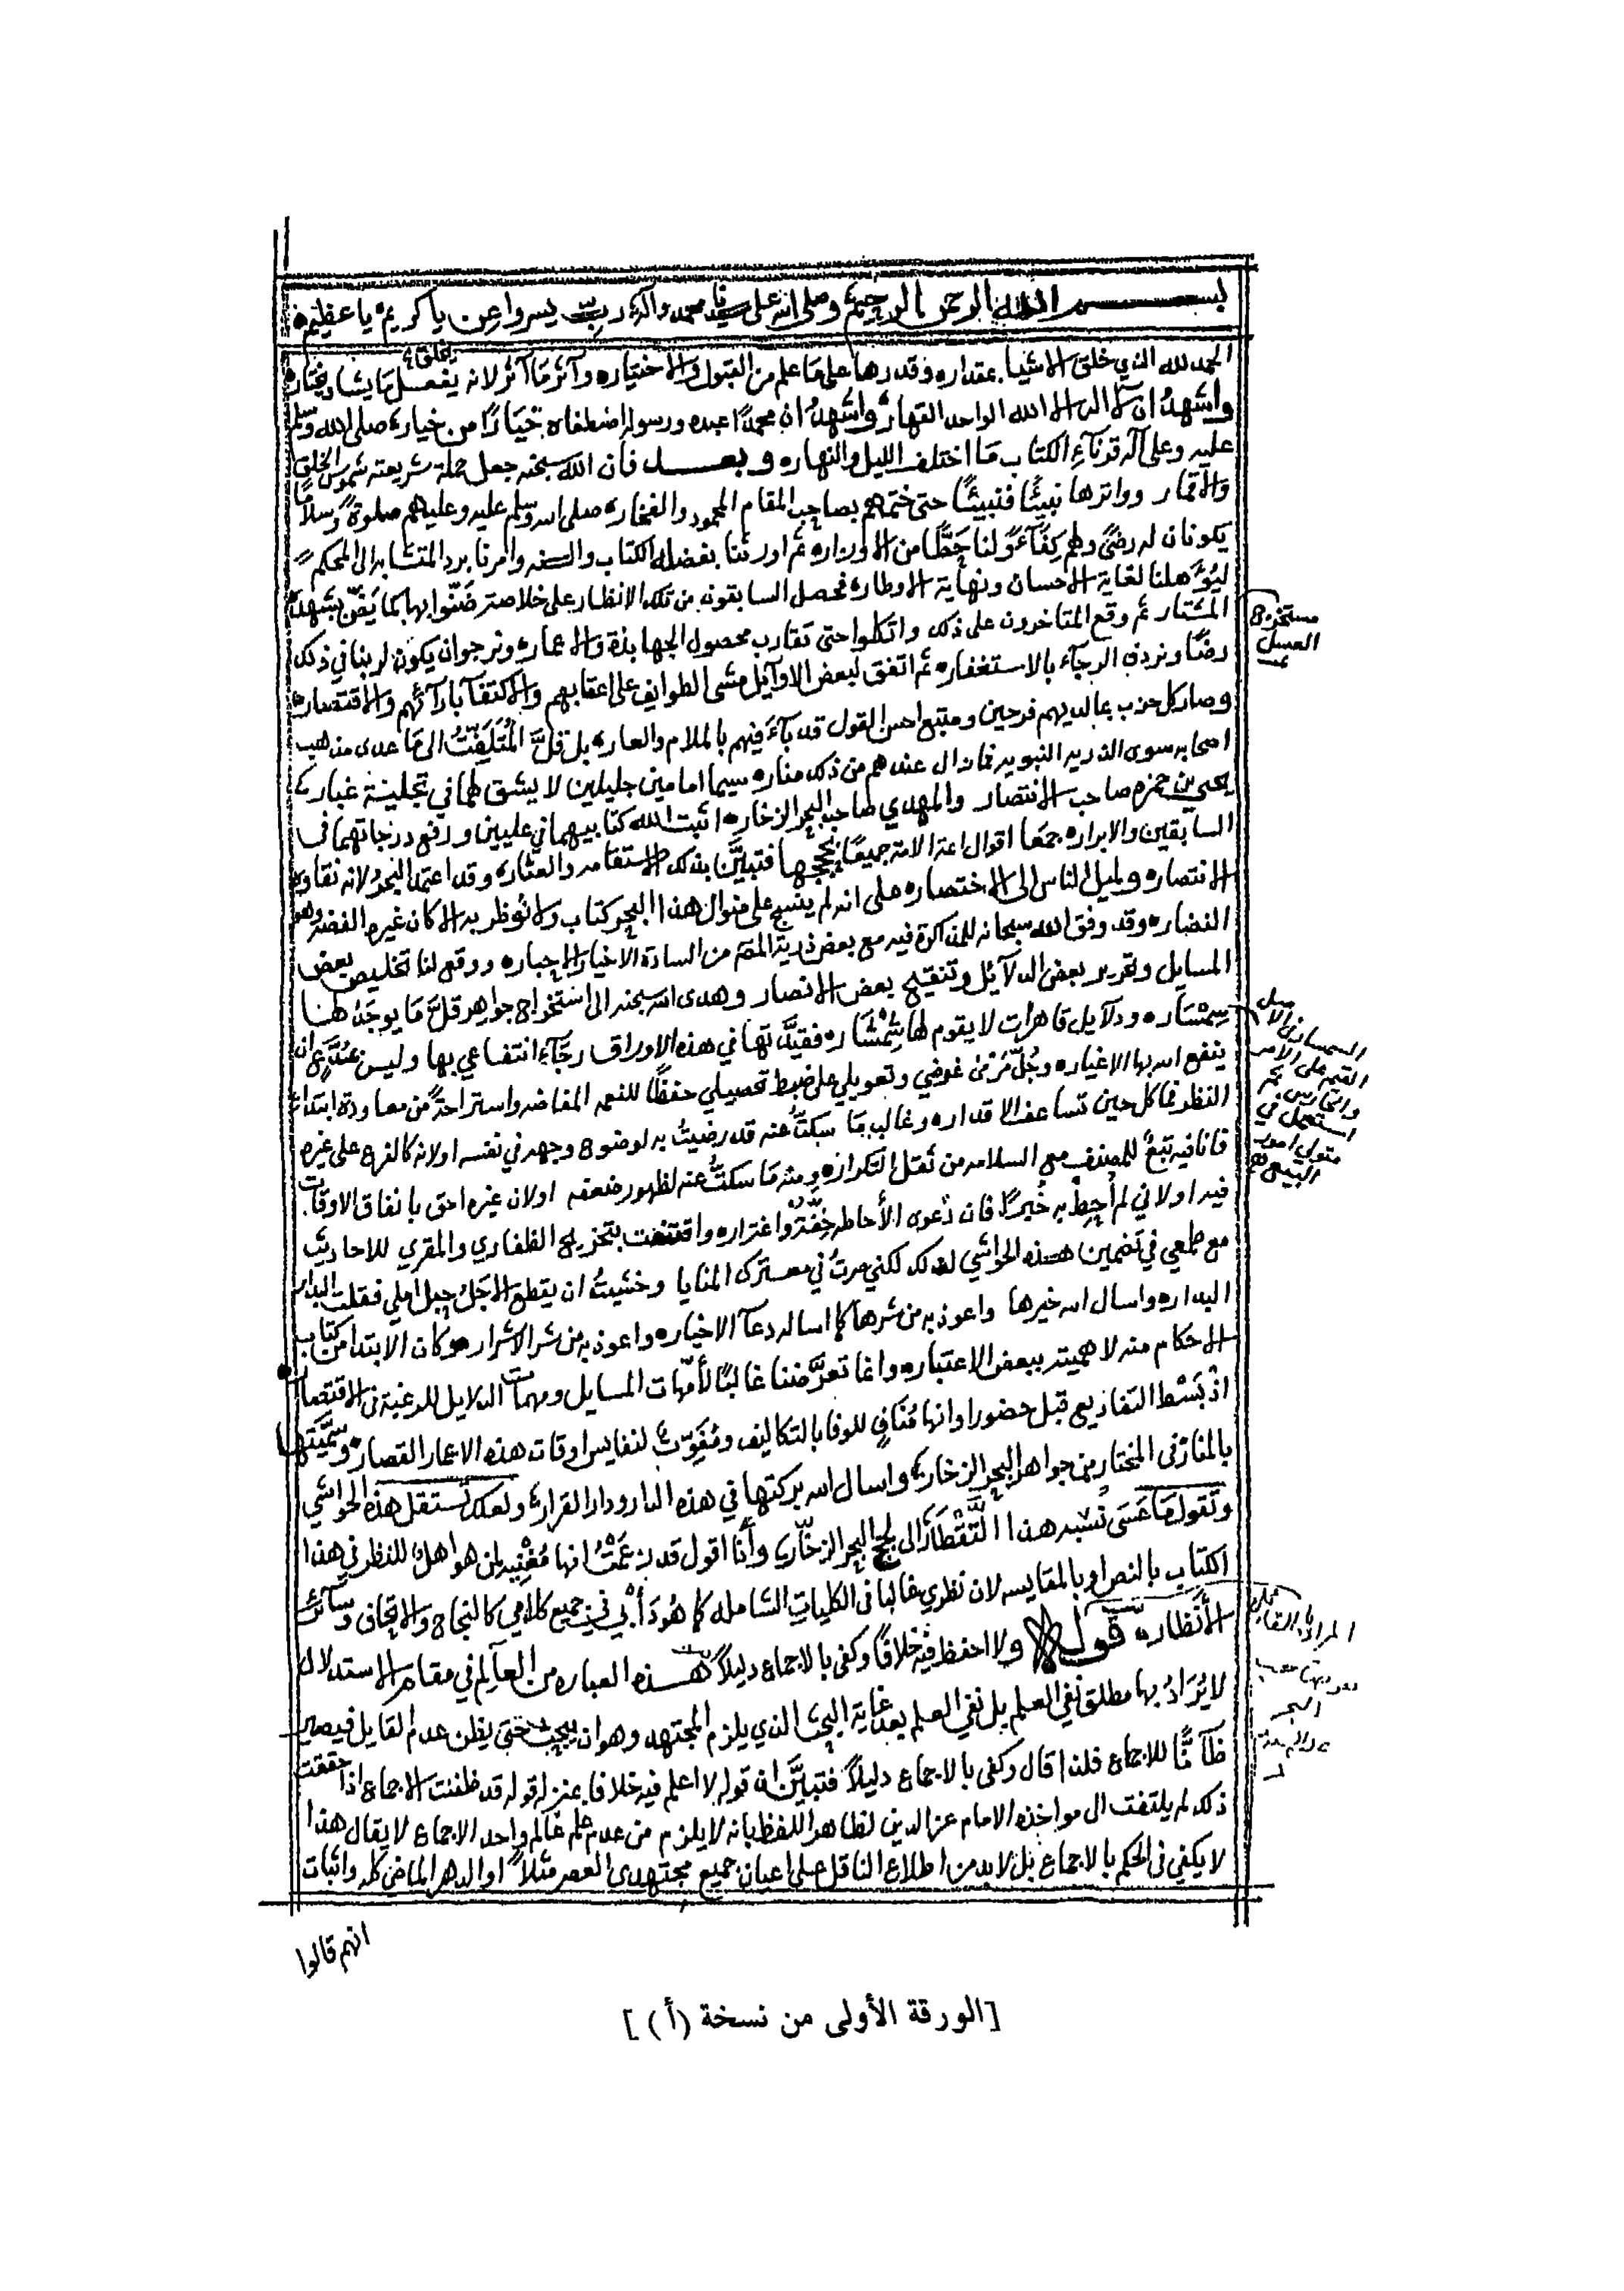 بسم الله الرحمن الرحيم وصلى الله على سيدنا محمد وآله رب يسر واعن يا كريم يا عظيم
الحمد لله الذي خلق الاشيا بمقدار وقدرها على ما علم من القبول والاختيار وآثر ما آثر لانه يفعل ما يشا ويختار
يخلق
واشهد ان لا اله الا الله الواحد القهار واشهد ان محمدًا عبده ورسوله اصطفاه خيارًا من خيار صلى الله وسلم
عليه وعلى آله قرناء الكتاب ما اختلف الليل والنهار وبعد فان الله سبحنه جعل حملة شريعته شموس الخلق
والاقمار وواترها نبيئًا فنبيئًا حتى ختمهم بصاحب المقام المحمود والفخار صلى الله وسلم عليه وعليهم صلوة وسلامًا
يكونان له رضىً ولهم كفاءً ولنا حطًّا من الاوزار ثم اورثنا بفضله الكتاب والسنه وامرنا برد المتشابه الى المحكم
ليؤهلنا لغاية الاحسان ونهاية الاوطار فحصل السابقون من تلك الانظار على خلاصة ضنّوا بها كما يضن بشهده
المشتار ثم وقع المتاخرون على ذلك واتكلوا حتى تقارب محصول الجهابذة والاعمار ونرجو ان يكون لربنا في ذلك
رضًا ونردف الرجآء بالاستغفار ثم اتفق لبعض الاوآيل مشي الطوايف على اعقابهم والاكتفآ بارآئهم والاقتصار
وصار كل حزب بما لديهم فرحين ومتبع احسن القول قد بآء فيهم بالملام والعار بل قلّ الملتفت الى ما عدى مذهب
اصحابه سوى الذريه النبويه فما زال عندهم من ذلك منار سيما امامين جليلين لا يشق لهما في تجلية غبار
يحيى بن حمزه صاحب الانتصار والمهدي صاحب البحر الزخار اثبت الله كتابيهما في عليين ورفع درجاتهما في
السابقين والابرار جمعا اقوال ائمة الامة جميعًا بحججها فتبيَّن بذلك الاستقامه والعثار وقد اعتمد البحر لانه نقاوة
الانتصار ولميل الناس الى الاختصار على انه لم ينسج على منوال هذا البحر كتاب ولا نوظر به الا كان غيره الفضة وهو
النضار وقد وفق الله سبحانه للمذاكرة فيه مع بعض ذرية المص من السادة الاخيار الاحبار ووقع لنا تخليص بعض
المسايل وتحرير بعض الدلآئل وتنقيح بعض الانصار وهدى الله سبحنه الى استخراج جواهر قلَّ ما يوجد لها
سمسار ودلآيل قاهرات لا يقوم لها فقيدتها في هذه الاوراق رجآء انتفاعي بها وليس ان
ينفع الله بها الاغيار وجُلّ غرضي وتعويلي على ضبط تحصيلي حفظًا للنعم المفاضه واستراحة من معاودة ابتداء
النظر فما كل حين تساعف الاقدار وغالب ما سكتُّ عنه قد رضيتُ به لوضوح وجهه في نفسه او لانه كالفرع على غيره
فانا فيه تبعٌ للمصنف مع السلامه من ثقل التكرار ومنه ما سكتُّ عنه لظهور ضعفه او لان غيره احق بانفاق الاوقات
فيه او لاني لم أحط به خُبرًا فان دعوى الأحاطه واغترار واقتنعت بتخريج الظفاري والمقري للاحاديث
مع طمعي في تضمين هذه الحواشي لذلك لكني صرتُ في معترك المنايا وخشيتُ ان يقطع الاجل حبل أملي فقلت البدار
البدار واسال الله خيرها واعوذ به من شرها كما اساله دعآ الاخيار واعوذ به من شر الاشرار وكان الابتدا من كتاب
الاحكام منه لاهميته ببعض الاعتبار وانما تعرَّضنا غالبًا لأمّهات المسايل ومهمات الدلايل للرغبة في الاقتصار
اذ بَسْط التفاريع قبل حضور اوانها مُنَافٍ للوفا بالتكاليف ومُفَوِّتٌ لنفايس اوقات هذه الاعمار القصار وسَمَّيتها
بالمنار في المختار من جواهر البحر الزخار واسال الله بركتها في هذه الدار ودار القرار ولعلك تستقل هذه الحواشي
وتقول ما عسى نسبه هذا الى لجج البحر الزخّار وأنا اقول قد زعمتُ انها مُغنِيه لمن هو اهل للنظر في هذا
الكتاب بالنص او بالمقايسه لان نظري غالبا في الكليات الشامله كما هُو دَأبي في جميع كلامي كالنجاح والاتحاف وسآئر
الأنظار قوله ولا احفظ فيه خلافًا وكفى بالاجماع دليلًا هذه العباره من العالِم في مقام الاستدلال
لا يُرَادُ بها مطلق نفي العلم بل نفي العلم بعد غاية البحث الذي يلزم المجتهد وهو ان يبحث حتى يظن عدم القايل فيصير
ظآنًّا للاجماع فلذا قال وكفى بالاجماع دليلًا فتبيَّن ان قوله لا اعلم فيه خلافا بمنزلة قوله قد ظننت الاجماع اذا حققت
ذلك لم يلتفت الى مواخذه الامام عز الدين لظاهر اللفظ بانه لا يلزم من عدم علم عالم واحد الاجماع لا يقال هذا
لا يكفي في الحكم بالاجماع بل لا بد من اطلاع الناقل على اعيان جميع مجتهدى العصر مثلًا او الدهر الماضي كله واثبات
مستخرج
العسل
السمسار في الاصل
القيم على الامر
والحارس ثم
استعمل في
متولي امور
البيع
المراد بالمقايسه
البحر
انهم قالوا
[الورقة الأولى من نسخة (أ)]